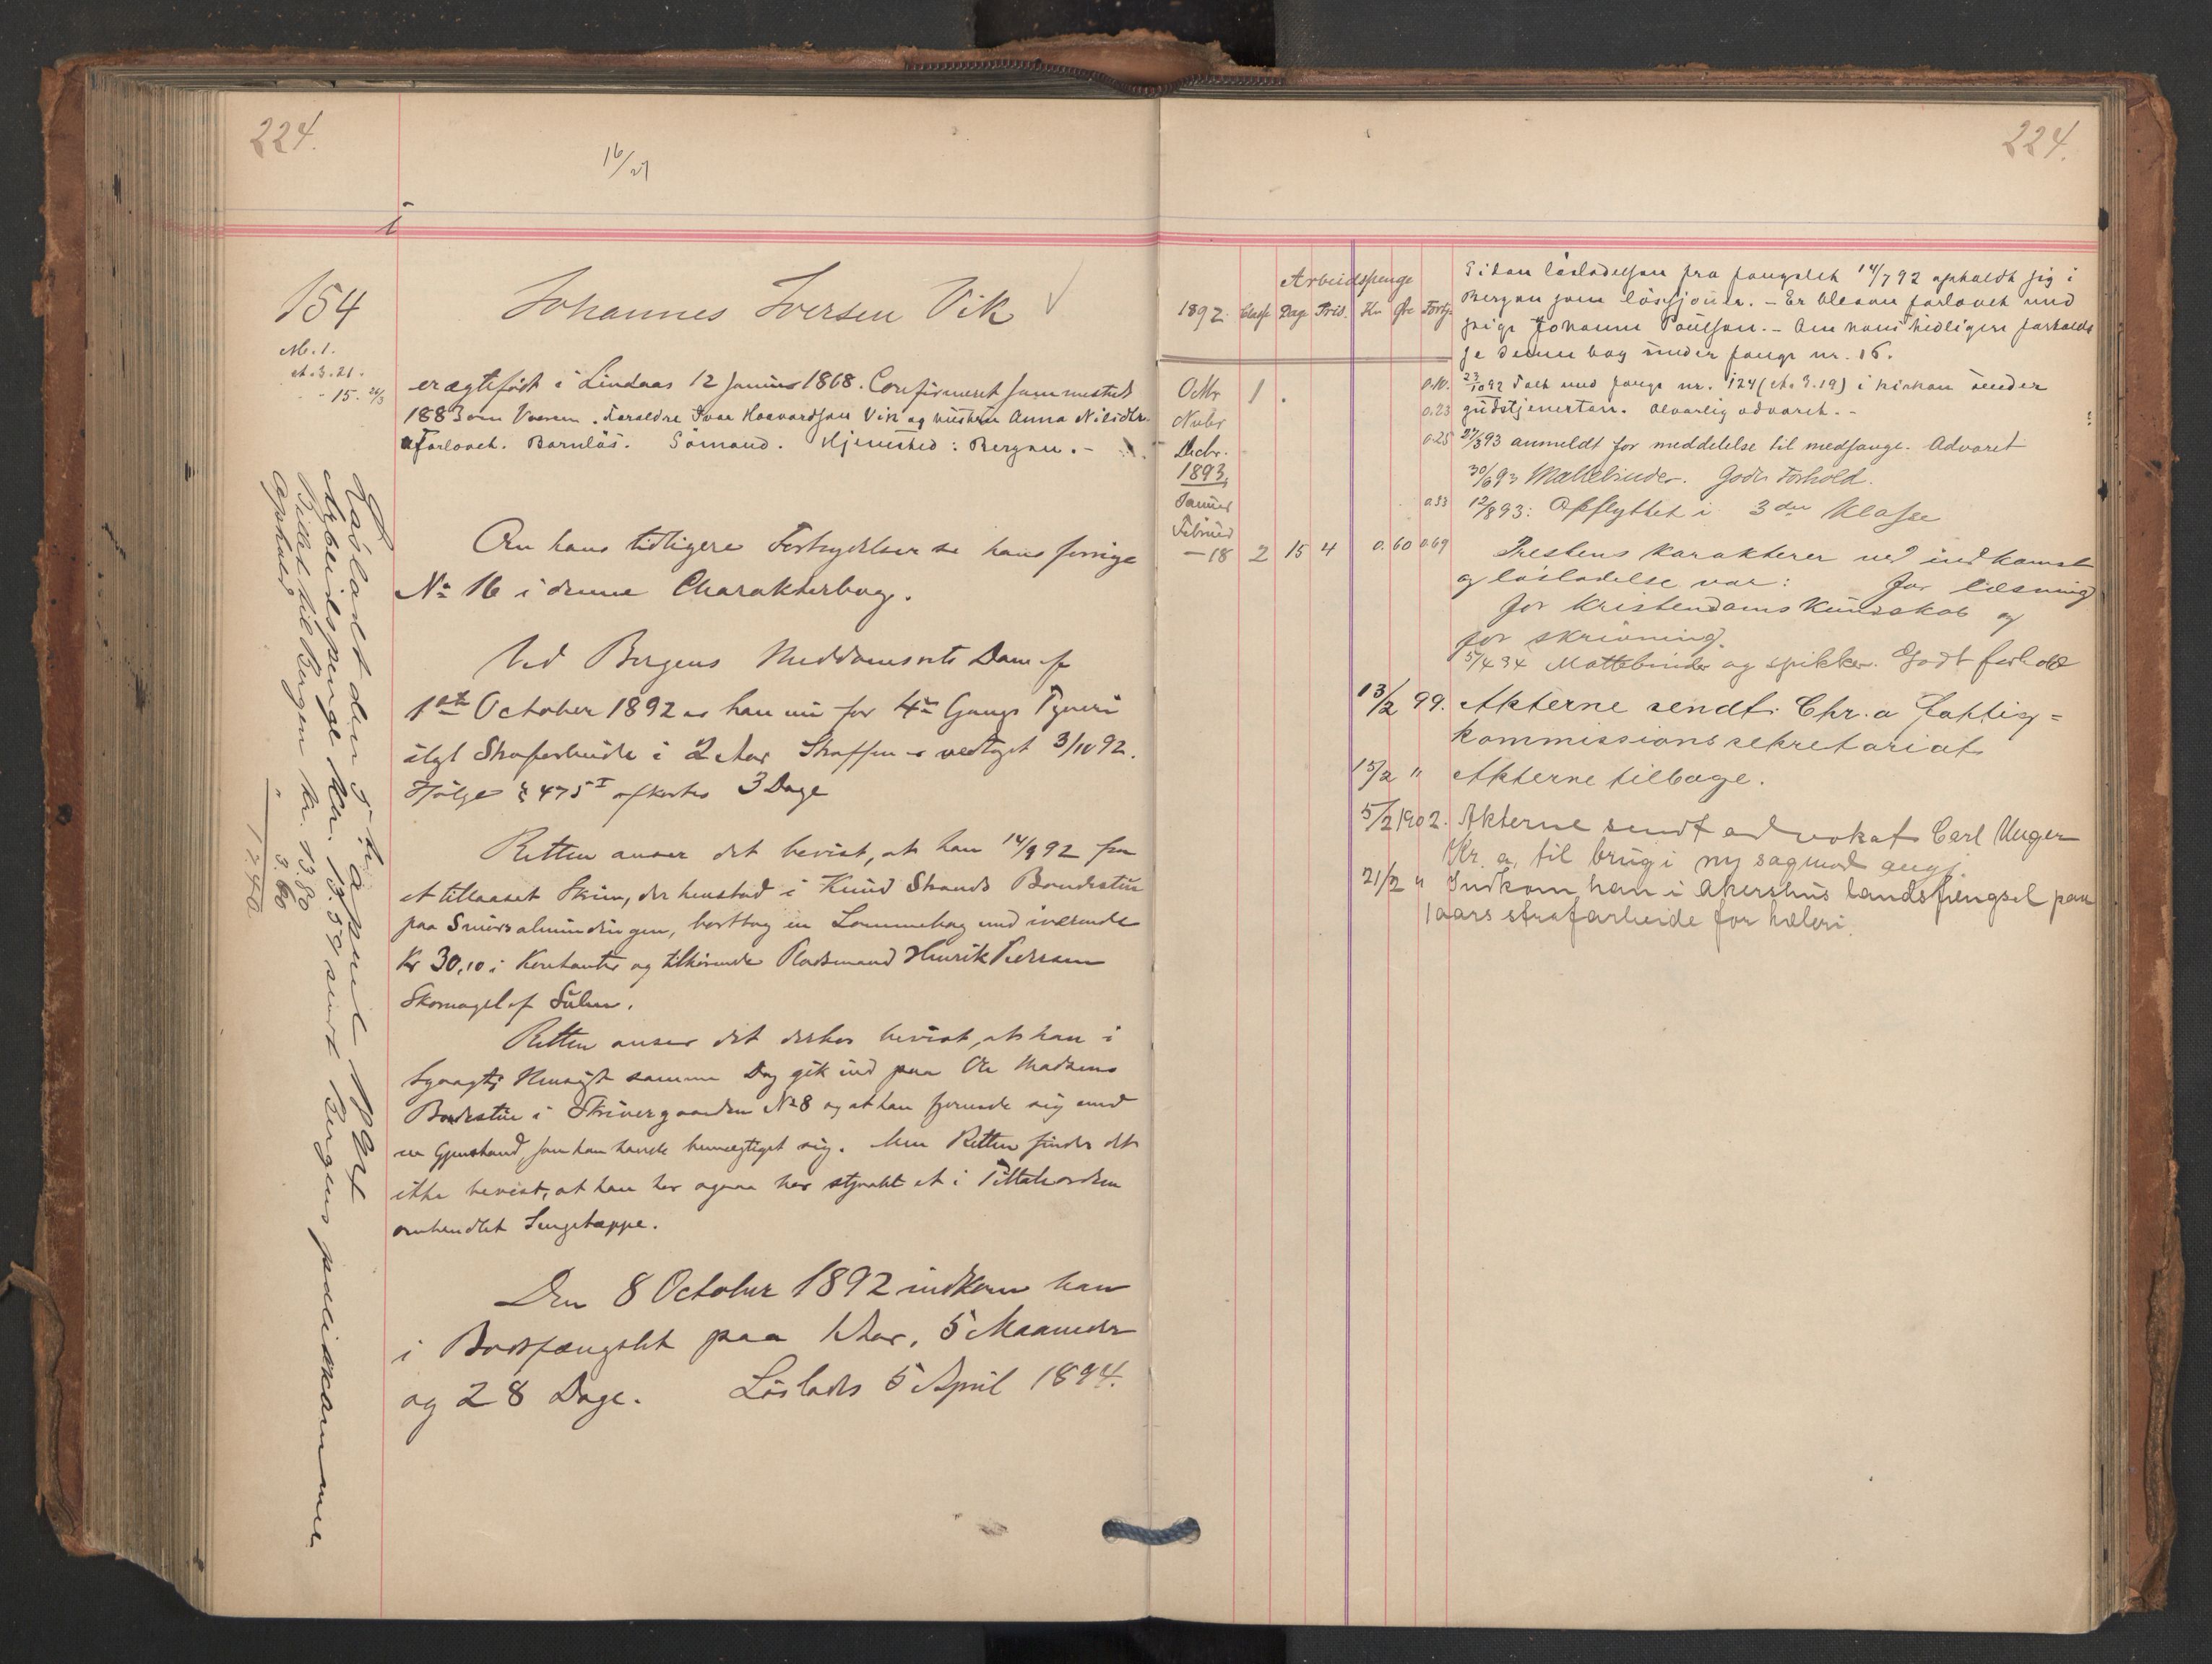 224.
16/21
i
154
M. 1.
A. 3. 21.
" - 15. 26/3
Johannes Iversen Vik
er ægtefödt i Lindaas 12 Januar 1868. Confirmeret sammesteds
1883 om Vaaren. Foraeldre Ivar Haavardsen Vik og hustru Anna Nilsdtr.
Forlovet. Barnlös. Sömand. Hjemsted: Bergen. -
Om hans tidligere Forbrydelser se hans forrige
No 16 i denne Charakterbog.
Ved Bergens Meddomsrets Dom af
1ste October 1892 er han nu for 4de Gangs Tyveri
ilagt Strafarbeide i 2 Aar Straffen er vedtaget 3/10 92.
Ifölge § 475 I afkortes 3 Dage
Retten anser det bevist, at han 14/9 92 fra
et tillaaset Skrin, der henstod i Knud Strands Bondestue
paa Smörsalmindingen, borttog en Lommebog med iværende
Kr 30,10 i Kontanter og tilhörende Pladsmand Henrik Pedersen
Skornagel af Sulen.
Retten anser det derhos bevist, at han i
tyvagtig Hensigt samme Dag gik ind paa Ole Madsens
Bondestue i Skrivergaarden No 8 og at han fjernede sig med
en Gjenstand, som han havde bemægtiget sig. Men Retten finder det
ikke bevist, at han her ogsaa har stjaalet et i Tiltaleordren
omhandlet Sengetæppe.
Den 8 October 1892 indkom han
i Bodsfængslet paa 1 Aar, 5 Maaneder
og 28 Dage. Löslades 5 April 1894.
Lösladt den 5te april 1894
Arbeidspenge kr. 13.59 sendt Bergens politikammer
Billet til Bergen kr. 13.80
Ophold " 3.60
17.40
224.
Arbeidspenge
1892. Classe Dage Frid. Kr. Öre Fortj.
Octbr 1. 0.10.
Nvbr 0.23
Decbr. 0.25
1893,
Januar 0.53
Februar
— 18 2 15 4 0.60 0.69
Siden lösladelsen fra fængslet 14/7 92 opholdt sig i
Bergen som lössjouer. - Er bleven forlovet med
pige Johanne Poulsen. - Om hans tidligere forholds
se denne bog under fange nr. 16.
23/10 92 Talt med fange nr. 124 (A. 3.19) i kirken under
gudstjenesten. Alvorlig advaret. -
27/3 93 anmeldt for meddelelse til medfange. Advaret
30/6 93 Mattebinder. Godt Forhold.
12/8 93: Opflyttet i 3die Klasse
Prestens karakterer ved indkomst
og lösladelse var: for læsning
for kristendomskundskab og
for skrivning.
5/4 94 Mattebinder og spikker. Godt forhold
13/2 99. Akterne sendt Chr.a Fattig=
kommissions sekretariat
15/2 " Akterne tilbage.
5/2 1902. Akterne sendt advokat Carl Unger
Kr. a. til brug i ny sag mod angj.
21/2 " Indkom han i Akershus landsfengsel paa
1 aars strafarbeide for hæleri.